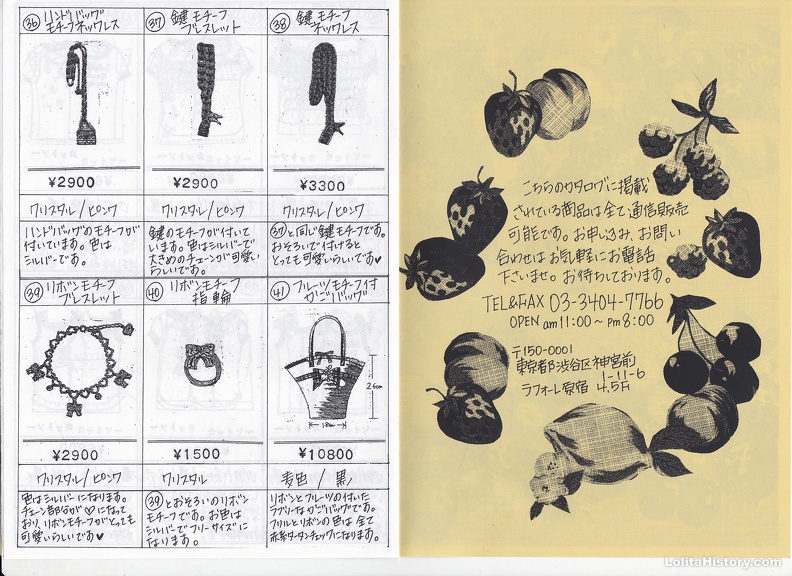 ㊱ ハンドバッグ
モチーフネックレス
¥2900
クリスタル/ピンク
ハンドバッグのモチーフが
付いています。色は
シルバーです。
㊲ 鍵モチーフ
ブレスレット
¥2900
クリスタル/ピンク
鍵のモチーフが付いて
います。色はシルバーで
大きめのチェーンが可愛い
らしいです。
㊳ 鍵モチーフ
ネックレス
¥3300
クリスタル/ピンク
㊲と同じ鍵モチーフです。
おそろいで付けると
とっても可愛いらしいです♥
㊴ リボンモチーフ
ブレスレット
¥2900
クリスタル/ピンク
色はシルバーになります。
チェーン部分が♡になって
おり、リボンモチーフがとっても
可愛いらしいです♥
㊵ リボンモチーフ
指輪
¥1500
クリスタル
㊴とおそろいのリボン
モチーフです。お色は
シルバーでフリーサイズに
なります。
㊶ フルーツモチーフ付
カゴバッグ
26cm
18cm
¥10800
麦色/黒
リボンとフルーツの付いた
ラブリーなカゴバッグです。
フリルとリボンの色は全て
赤系タータンチェックになります。
こちらのカタログに掲載
されている商品は全て通信販売
可能です。お申し込み、お問い
合わせはお気軽にお電話
下さいませ。お待ちしております。
TEL&FAX 03-3404-7766
OPEN am11:00~pm8:00
〒150-0001
東京都渋谷区神宮前
1-11-6
ラフォーレ原宿 4.5F
LolitaHistory.com